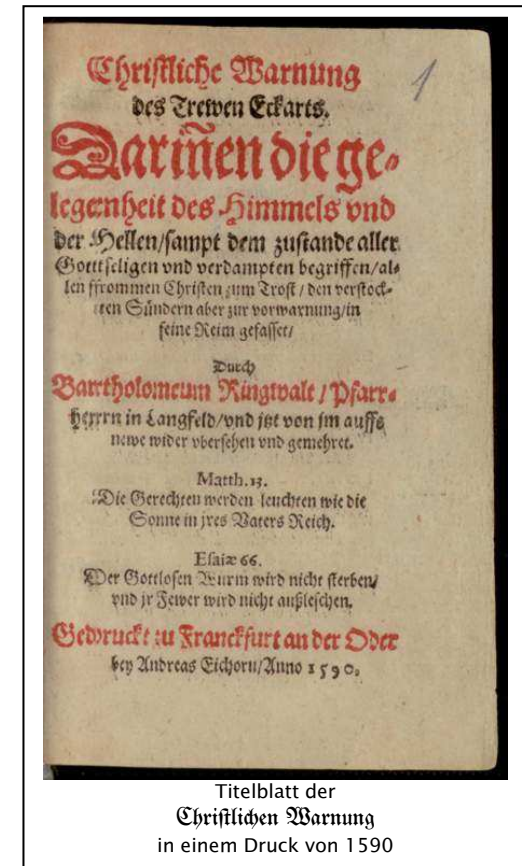 Christliche Warnung
des Trewen Eckarts.
Dariñen die ge-
legenheit des Himmels vnd
der Hellen/sampt dem zustande aller
Gotttseligen vnd verdampten begriffen/al-
len ffrommen Christen zum Trost/den verstock-
ten Sündern aber zur vorwarnung/in
feine Reim gefasset/
Durch
Barrtholomeum Ringwalt/Pfarr-
herrn in Langfeld/vnd jtzt von jm auffs
newe wider vbersehen vnd gemehret.
Matth.13.
Die Gerechten werden leuchten wie die
Sonne in jres Vaters Reich.
Esaiæ 66.
Der Gottlosen Wurm wird nicht sterben/
vnd jr Fewer wird nicht außleschen.
Gedruckt zu Franckfurt an der Oder
bey Andreas Eichorn/Anno 1590.
1
Titelblatt der
Christlichen Warnung
in einem Druck von 1590